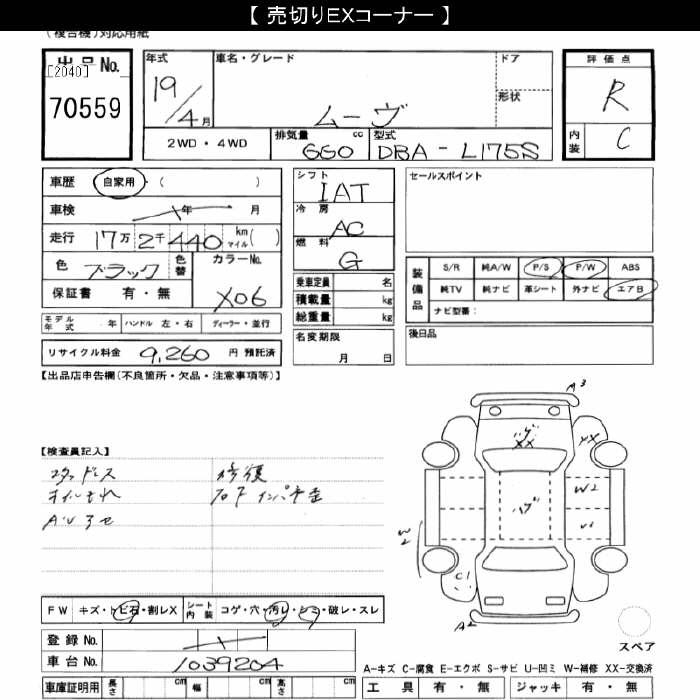 【 売切りEXコーナー 】
(複合機)対応用紙
出品No.
[2040]
70559
年式
19/4月
車名・グレード
ムーヴ
ドア
形状
2WD・4WD
排気量 cc
660
型式
DBA-L175S
評価点
R
内装
C
車歴 自家用・( )
車検 年 月
走行 17万2千440 km マイル( )
色 ブラック 色替
カラーNo.
X06
保証書 有・無
モデル年式 年 ハンドル 左・右 ディーラー・並行
リサイクル料金 9,260 円 預託済
シフト
IAT
冷房
AC
燃料
G
乗車定員 名
積載量 kg
総重量 kg
名変期限
月 日
セールスポイント
装備品
S/R 純A/W P/S P/W ABS
純TV 純ナビ 革シート 外ナビ エアB
ナビ型番:
後日品
【出品店申告欄(不良箇所・欠品・注意事項等)】
【検査員記入】
スタッドレス
オイルもれ
修復
A3
ハゲ
XX
XX
W2
ハゲ
W2
C1
A2
FW キズ・トビ石・割レX
シート内装 コゲ・穴・汚レ・シミ・破レ・スレ
登録No.
車台No. 1039204
車庫証明用 長さ cm 幅 cm 高さ cm
スペア
A-キズ C-腐食 E-エクボ S-サビ U-凹ミ W-補修 XX-交換済
工具 有・無 ジャッキ 有・無